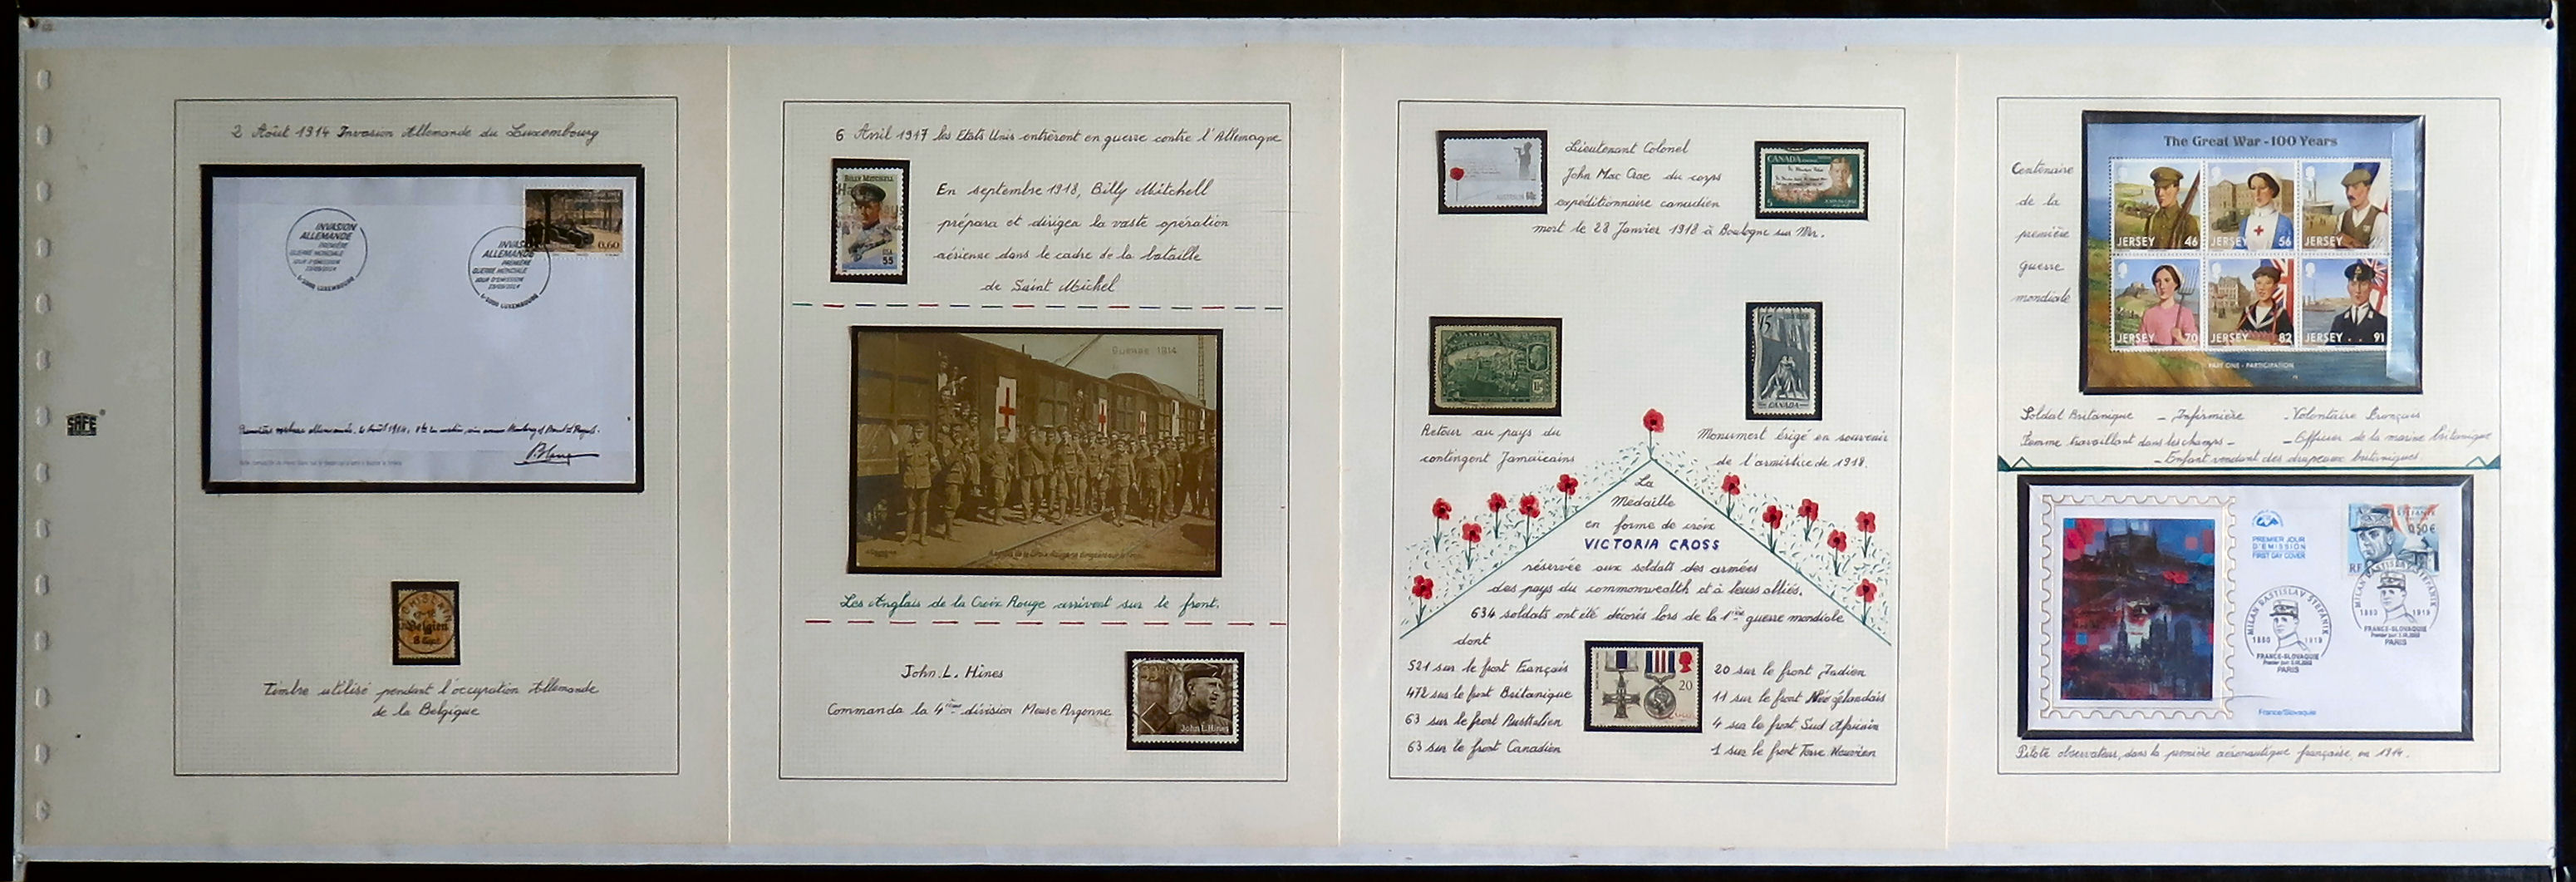 SAFE
2 Août 1914 Invasion Allemande du Luxembourg
INVASION
ALLEMANDE
PREMIÈRE
GUERRE MONDIALE
JOUR D'EMISSION
23/09/2014
L-2992 LUXEMBOURG
0,60
INVASION
ALLEMANDE
PREMIÈRE
GUERRE MONDIALE
JOUR D'EMISSION
23/09/2014
LUXEMBOURG
Belgien
Timbre utilisé pendant l'occupation Allemande
de la Belgique
6 Avril 1917 les Etats Unis entrèront en guerre contre l'Allemagne
BILLY MITCHELL
USA
55
En septembre 1918, Billy Mitchell
prépara et dirigea la vaste opération
aérienne dans le cadre de la bataille
de Saint Michel
GUERRE 1914
Les Anglais de la Croix Rouge arrivent sur le front.
John L. Hines
Commanda la 4ème division Meuse Argonne
John L. Hines
AUSTRALIA 60c
Lieutenant Colonel
John Mac Crae du corps
expéditionnaire canadien
mort le 28 Janvier 1918 à Boulogne sur Mer.
CANADA
5
JAMAICA
15
CANADA
Retour au pays du
contingent Jamaïcains
Monument érigé en souvenir
de l'armistice de 1918.
La
Medaille
en forme de croix
VICTORIA CROSS
réservée aux soldats des armées
des pays du commonwealth et à leurs alliés.
634 soldats ont été décorés lors de la 1ère guerre mondiale
dont
521 sur le front Français
472 sur le front Britanique
63 sur le front Australien
63 sur le front Canadien
20
20 sur le front Indien
11 sur le front Néo zélandais
4 sur le front Sud Africain
1 sur le front Terre Neuvien
Centenaire
de la
première
guerre
mondiale
The Great War - 100 Years
JERSEY 46
JERSEY 56
JERSEY
JERSEY 70
JERSEY 82
JERSEY 91
PART ONE - PARTICIPATION
Soldat Britanique - Infirmière - Volontaire Français
Femme travaillant dans les champs - - Officier de la marine britanique
- Enfant vendant des drapeaux britaniques.
PREMIER JOUR
D'ÉMISSION
FIRST DAY COVER
0,50 €
RF
MILAN RASTISLAV ŠTEFÁNIK
1880 1919
FRANCE-SLOVAQUIE
PARIS
MILAN RASTISLAV ŠTEFÁNIK
1880 1919
FRANCE-SLOVAQUIE
PARIS
France/Slovaquie
Pilote observateur, dans la première aéronautique française, en 1914.